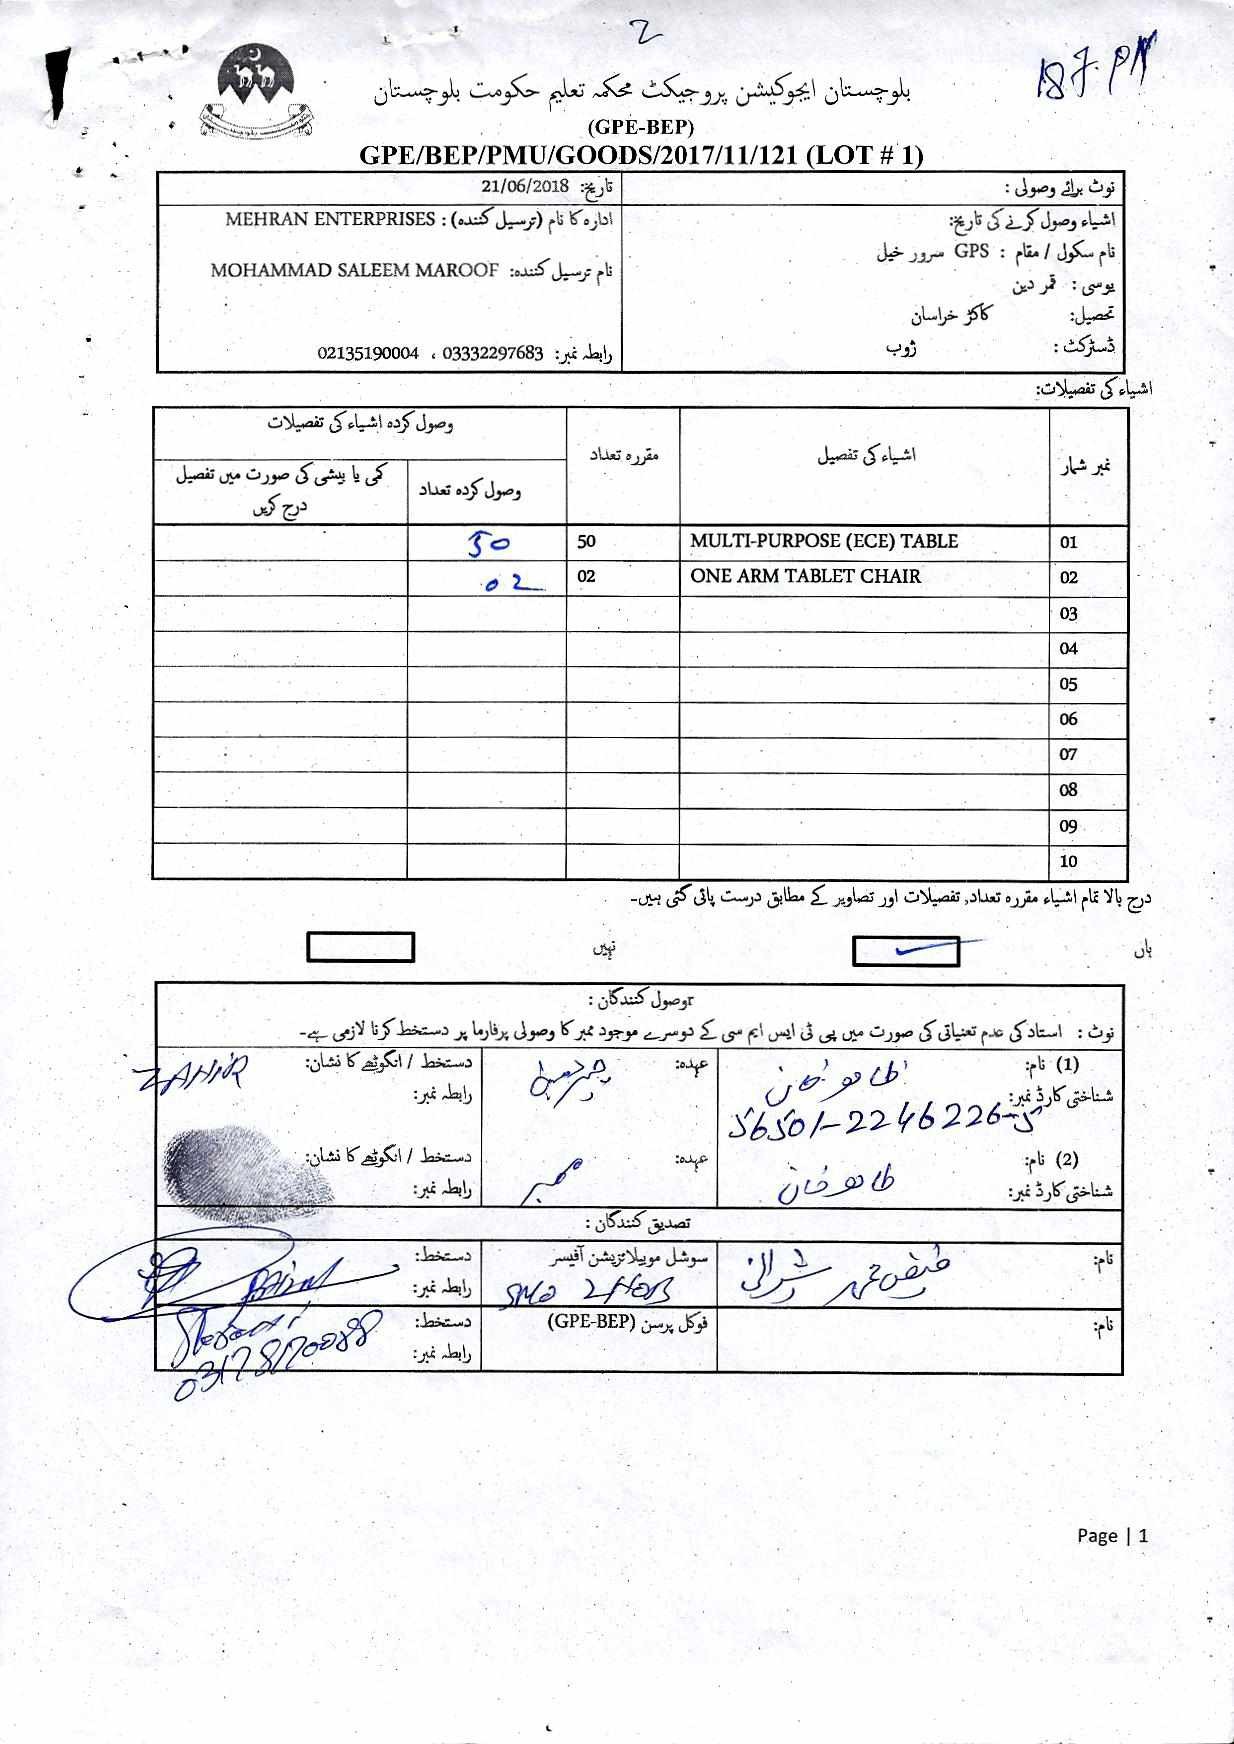 2
187. PM
بلوچستان ایجوکیشن پروجیکٹ محکمہ تعلیم حکومت بلوچستان
(GPE-BEP)
GPE/BEP/PMU/GOODS/2017/11/121 (LOT # 1)
نوٹ برائے وصولی :
تاریخ: 21/06/2018
اشیاء وصول کرنے کی تاریخ:
نام سکول / مقام : GPS سرور خیل
یوسی : قمر دین
تحصیل: کاکڑ خراسان
ڈسٹرکٹ : ژوب
ادارہ کا نام (ترسیل کنندہ) : MEHRAN ENTERPRISES
نام ترسیل کنندہ: MOHAMMAD SALEEM MAROOF
رابطہ نمبر: 03332297683 ، 02135190004
اشیاء کی تفصیلات:
نمبر شمار اشیاء کی تفصیل مقررہ تعداد وصول کردہ اشیاء کی تفصیلات
وصول کردہ تعداد کمی یا بیشی کی صورت میں تفصیل درج کریں
01 MULTI-PURPOSE (ECE) TABLE 50 50
02 ONE ARM TABLET CHAIR 02 02
03
04
05
06
07
08
09
10
درج بالا تمام اشیاء مقررہ تعداد, تفصیلات اور تصاویر کے مطابق درست پائی گئی ہیں۔
ہاں نہیں
وصول کنندگان :
نوٹ : استاد کی عدم تعیناتی کی صورت میں پی ٹی ایس ایم سی کے دوسرے موجود ممبر کا وصولی پرفارما پر دستخط کرنا لازمی ہے۔
(1) نام: ظاہر خان عہدہ: چیئرمین دستخط / انگوٹھے کا نشان: ZAHIR
شناختی کارڈ نمبر: 56501-2246226-5 رابطہ نمبر:
(2) نام: طاہر خان عہدہ: ممبر دستخط / انگوٹھے کا نشان:
شناختی کارڈ نمبر: رابطہ نمبر:
تصدیق کنندگان :
نام: فیض محمد شیرانی سوشل موبیلائزیشن آفیسر SMO ZHOB دستخط:
رابطہ نمبر:
نام: فوکل پرسن (GPE-BEP) دستخط: Sherani
رابطہ نمبر: 03178170088
Page | 1